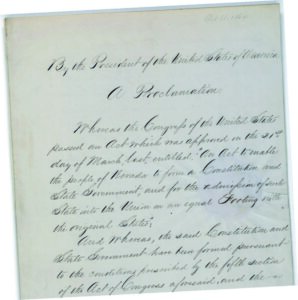 By the President of the United States of America.
A Proclamation.
Whereas the Congress of the United States
passed an Act which was approved on the 21st
day of March last, entitled, "An Act to enable
the people of Nevada to form a Constitution and
State Government, and for the admission of such
State into the Union on an equal footing with
the original States";
And Whereas, the said Constitution and
State Government have been formed, pursuant
to the conditions prescribed by the fifth section
of the Act of Congress aforesaid, and the